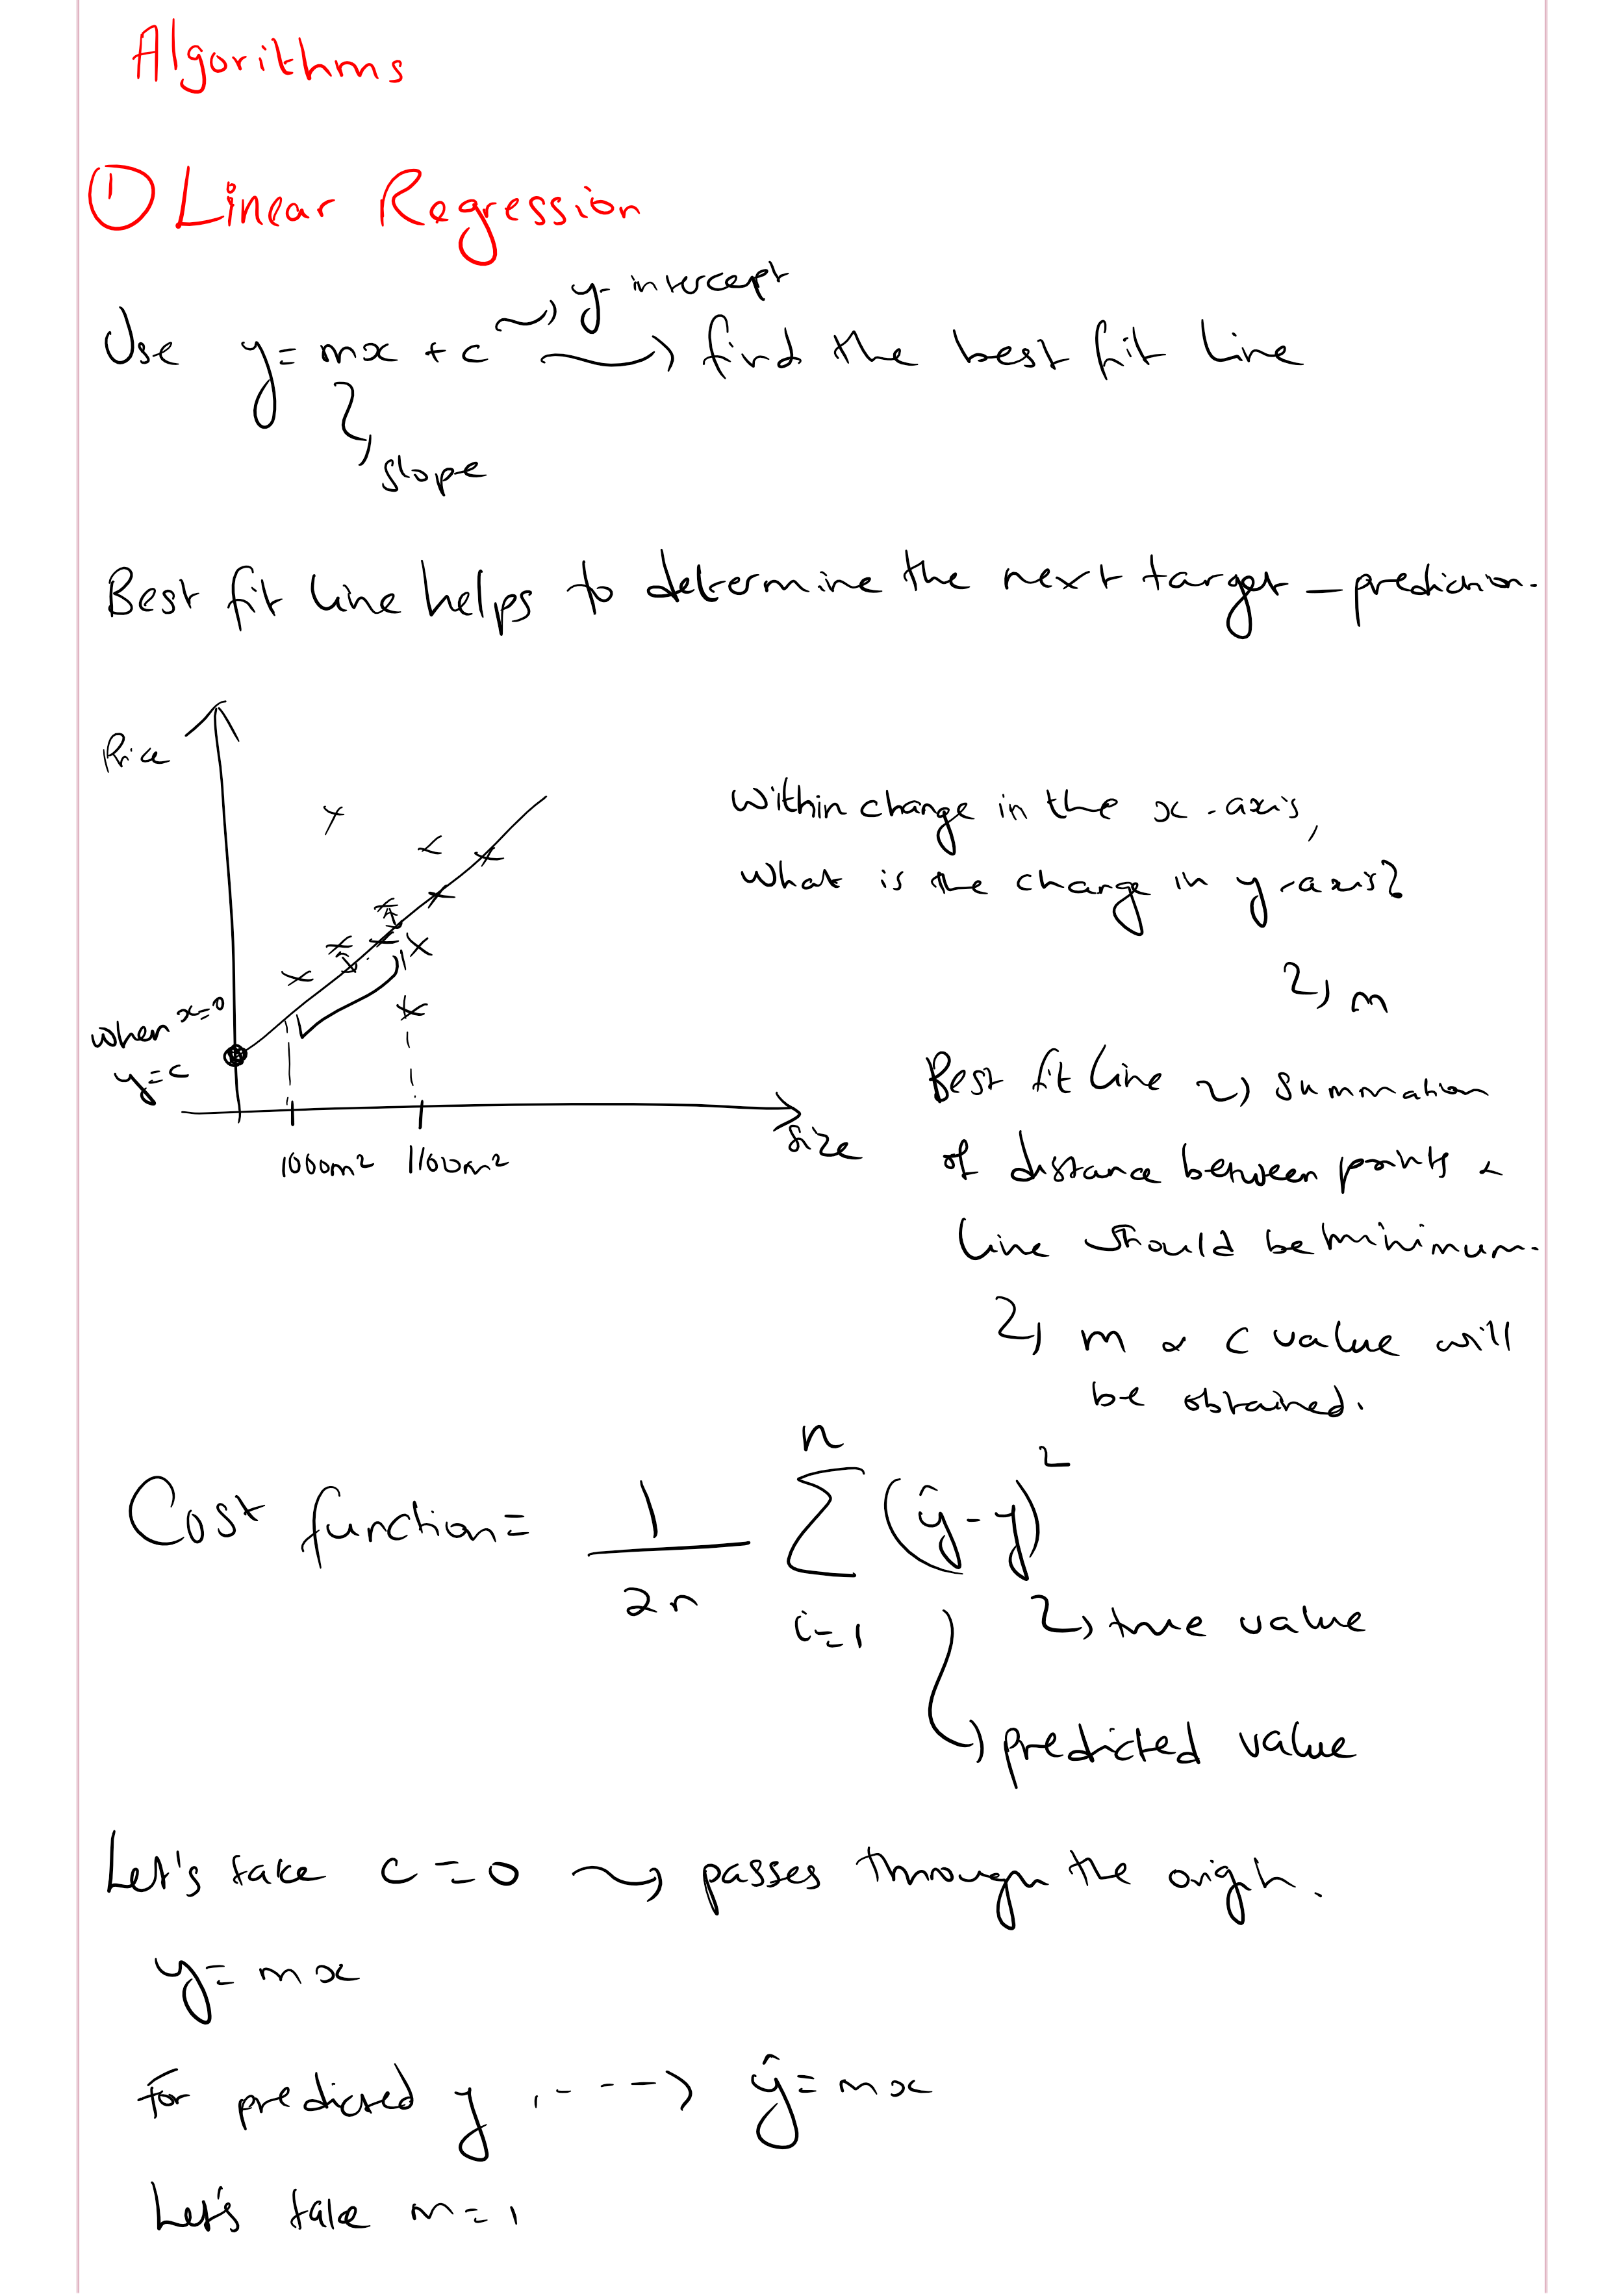 Algorithms
① Linear Regression
y-intercept
Use y = mx + c → find the best fit line
slope
Best fit line helps to determine the next target – prediction.
Price
Within change in the x-axis,
what is the change in y-axis?
m
when x=0
y=c
Size
1000m² 1100m²
Best fit line → summation
of distance between points &
line should be minimum.
m & c value will
be obtained.
Cost function = 1/2n n∑i=1 (ŷ-y)²
true value
predicted value
Let's take c=0 → passes through the origin.
y = mx
For predicted y ---→ ŷ = mx
Let's take m=1